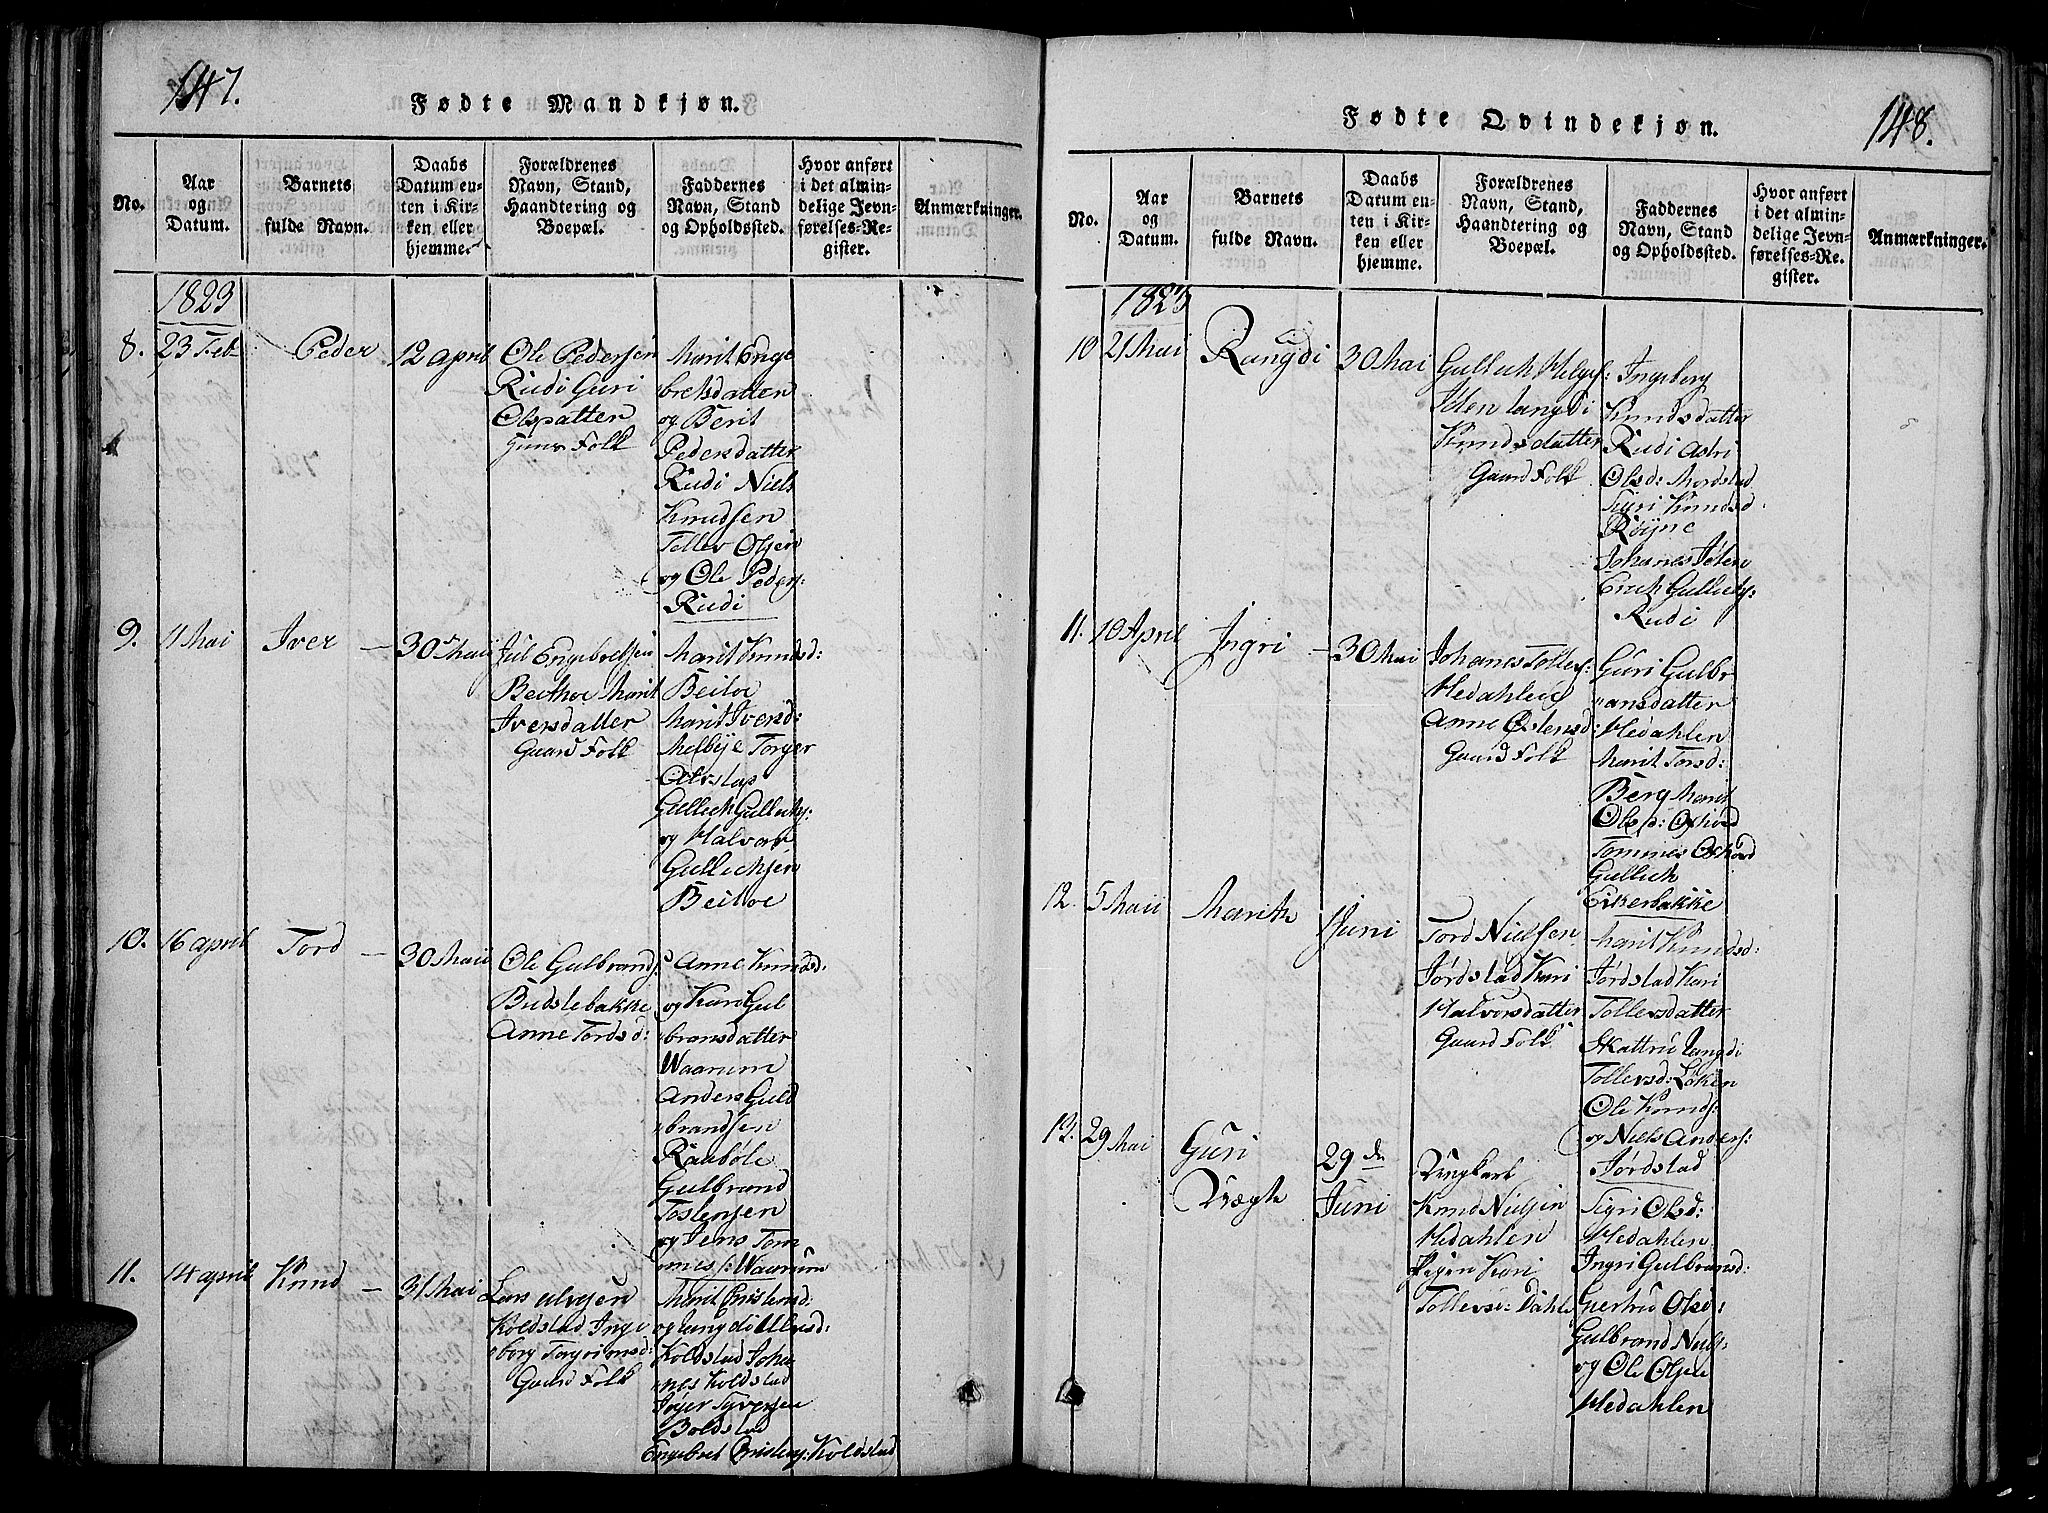 147.
Fødte Mandkjøn.
No.
Aar
og
Datum.
Barnets
fulde Navn.
Daabs
Datum en-
ten i Kir-
ken eller
hjemme.
Forældrenes
Navn, Stand,
Haandtering og
Boepæl.
Faddernes
Navn, Stand
og Opholdssted.
Hvor anført
i det almin-
delige Jevn-
førelses-Re-
gister.
Anmærkninger.
1823
8.
23 Feb
Peder
12 april
Ole Pedersen
Rudi Guri
Olsdatter
Folk
Marit Enge
bretsdatter
og Berit
Pedersdatter
Rudi Niels
Knudsen
Tollev Olsen
og Ole Peders:
Rudi
9.
11 Mai
Iver
30 Maii
Juul Engebretsen
Beithoe Marit
Iversdatter
Gaard Folk
Marit Knudsd:
Beitoe
Marit Iversd:
Melbye Torger
Olvstap
Gullich Gullichs:
og Halvor
Gullichsen
Beitoe
10.
16 april
Tord
30 Maii
Ole Gulbrands:
Budslebakke
Anne Tordsd:
Anne Knudsd:
og Kari Gul
bransdatter
Waarum
Anders Guld
brandsen
Raabøle
Gulbrand
Tostensen
og Jens Tom
mes: Waarum
11.
14 april
Knud
31 Mai
Lars Ulvsen
Koldstad Inge
borg Torgrimsd:
Gaard Folk
Marit
og Rangdi Ulvsd:
Koldstad Joha
nes Koldstad
Boldstad
Engebret Koldstad
148.
Fødte Qvindekjøn.
No.
Aar
og
Datum.
Barnets
fulde Navn.
Daabs
Datum en-
ten i Kir-
ken eller
hjemme.
Forældrenes
Navn, Stand,
Haandtering og
Boepæl.
Faddernes
Navn, Stand
og Opholdssted.
Hvor anført
i det almin-
delige Jevn-
førelses-Re-
gister.
Anmærkninger.
1823
10
21 Mai
Rangdi
30 Mai
Gullich Helges:
Iden Rangdi
Knudsdatter
Gaard Folk
Ingeberg
Knudsdatter
Rudi Astri
Olsd: Mordstad
Sigri Knudsd.
Røyne
Johanes Jøten
Erich Gullichs:
Rudi
11.
10 April
Ingri
30 Mai
Johanes Tollefs:
Hedahlen
Anne Østensd:
Gaard Folk
Guri Gulbr
ansdatter
Hedahlen
Marit Torsd:
Berg Marit
Olsd: Oxhovd
Tommes Oxhovd
Gullich
Eikerbakke
12.
5 Maii
Marith
1 Juni
Tord Nielsen
Jørdstad Kari
Halvorsdatter
Gaard Folk
Marit Knudsd:
Jørdstad Kari
Tollevsdatter
Skattru Rangdi
Tollevsd: Løken
Ole Knuds:
og Niels Anders:
Jørdstad
13.
29 Mai
Guri
Uægte
29 de
Juni
Ungkarl
Knud Nielsen
Hedahlen
Pigen Kari
Tollevsd: Dahle
Sigri Olsd:
Hedahlen
Ingri Gulbransd:
Giertrud Olsd:
Gulbrand Niels:
og Ole Olsen
Hedahlen